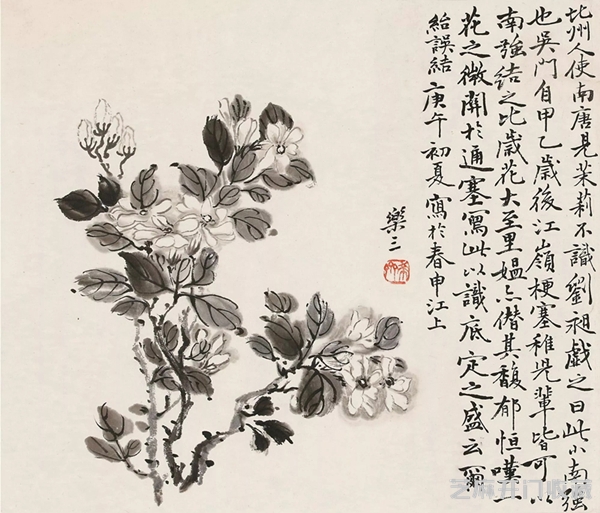 北州人使南唐見茉莉不識劉昶戲之曰此小南強
也吳門自甲乙歲後江嶺梗塞稚兒輩皆可以
南強結之比歲花大至里媼亦僭其馥郁恒嘆一
花之微關於通塞寫此以識底定之盛云爾
紿誤結 庚午初夏寫於春申江上
樂三
芝麻开门收藏